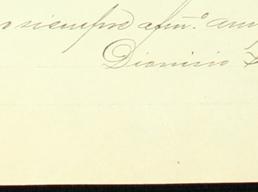 siempre afmo.
Dionisio